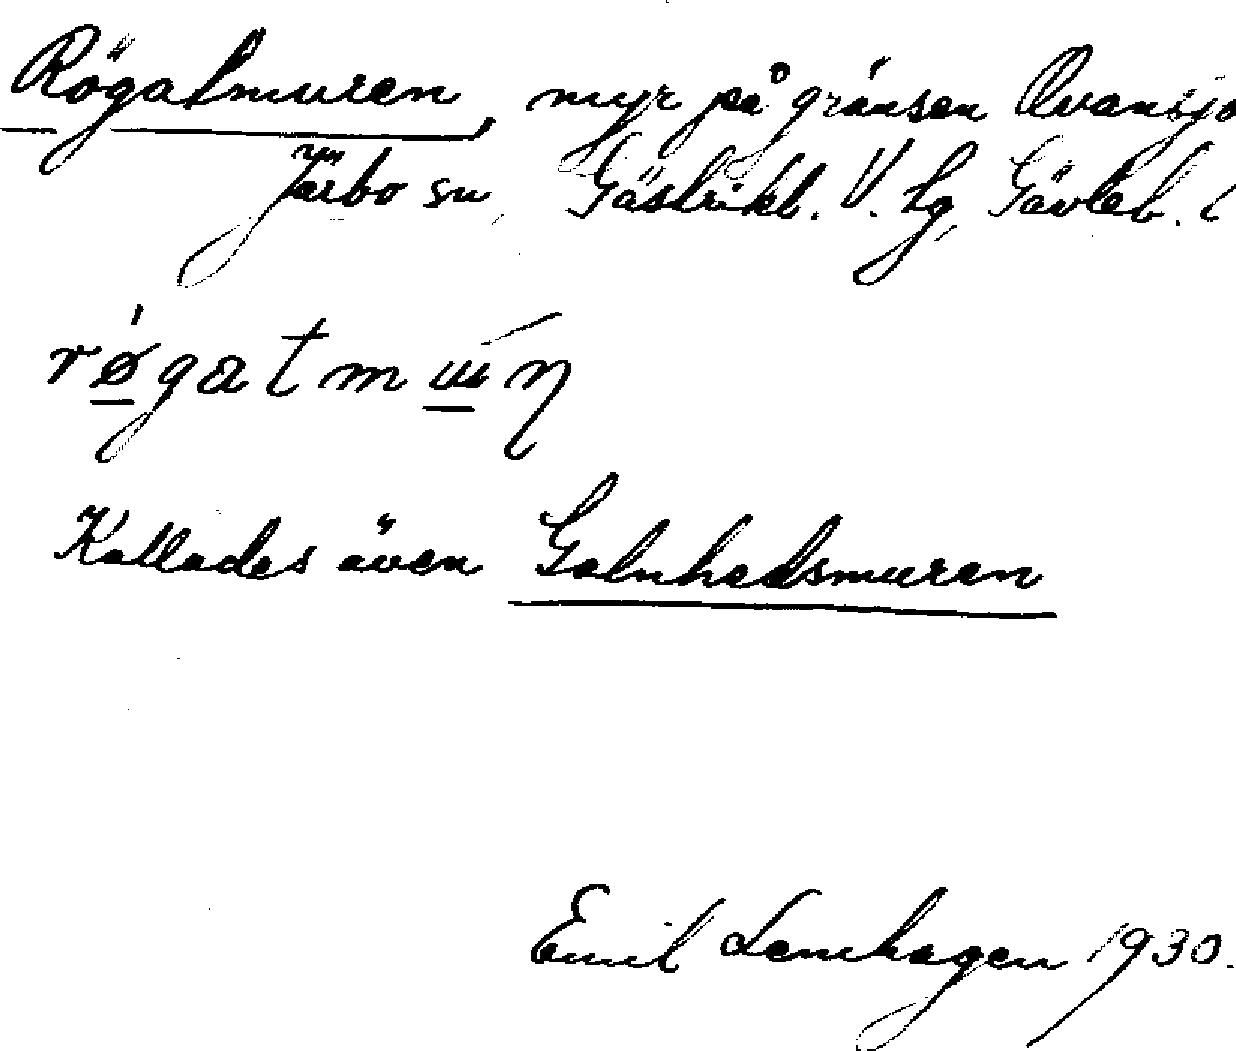 Rögatmuren, myr på gränsen Ovansjö
Järbo sn, Gästrikl. V. tg, Gävleb. l
røgatmuꞮn
Kallades även Galnhedsmuren
Emil Lenhagen 1930.